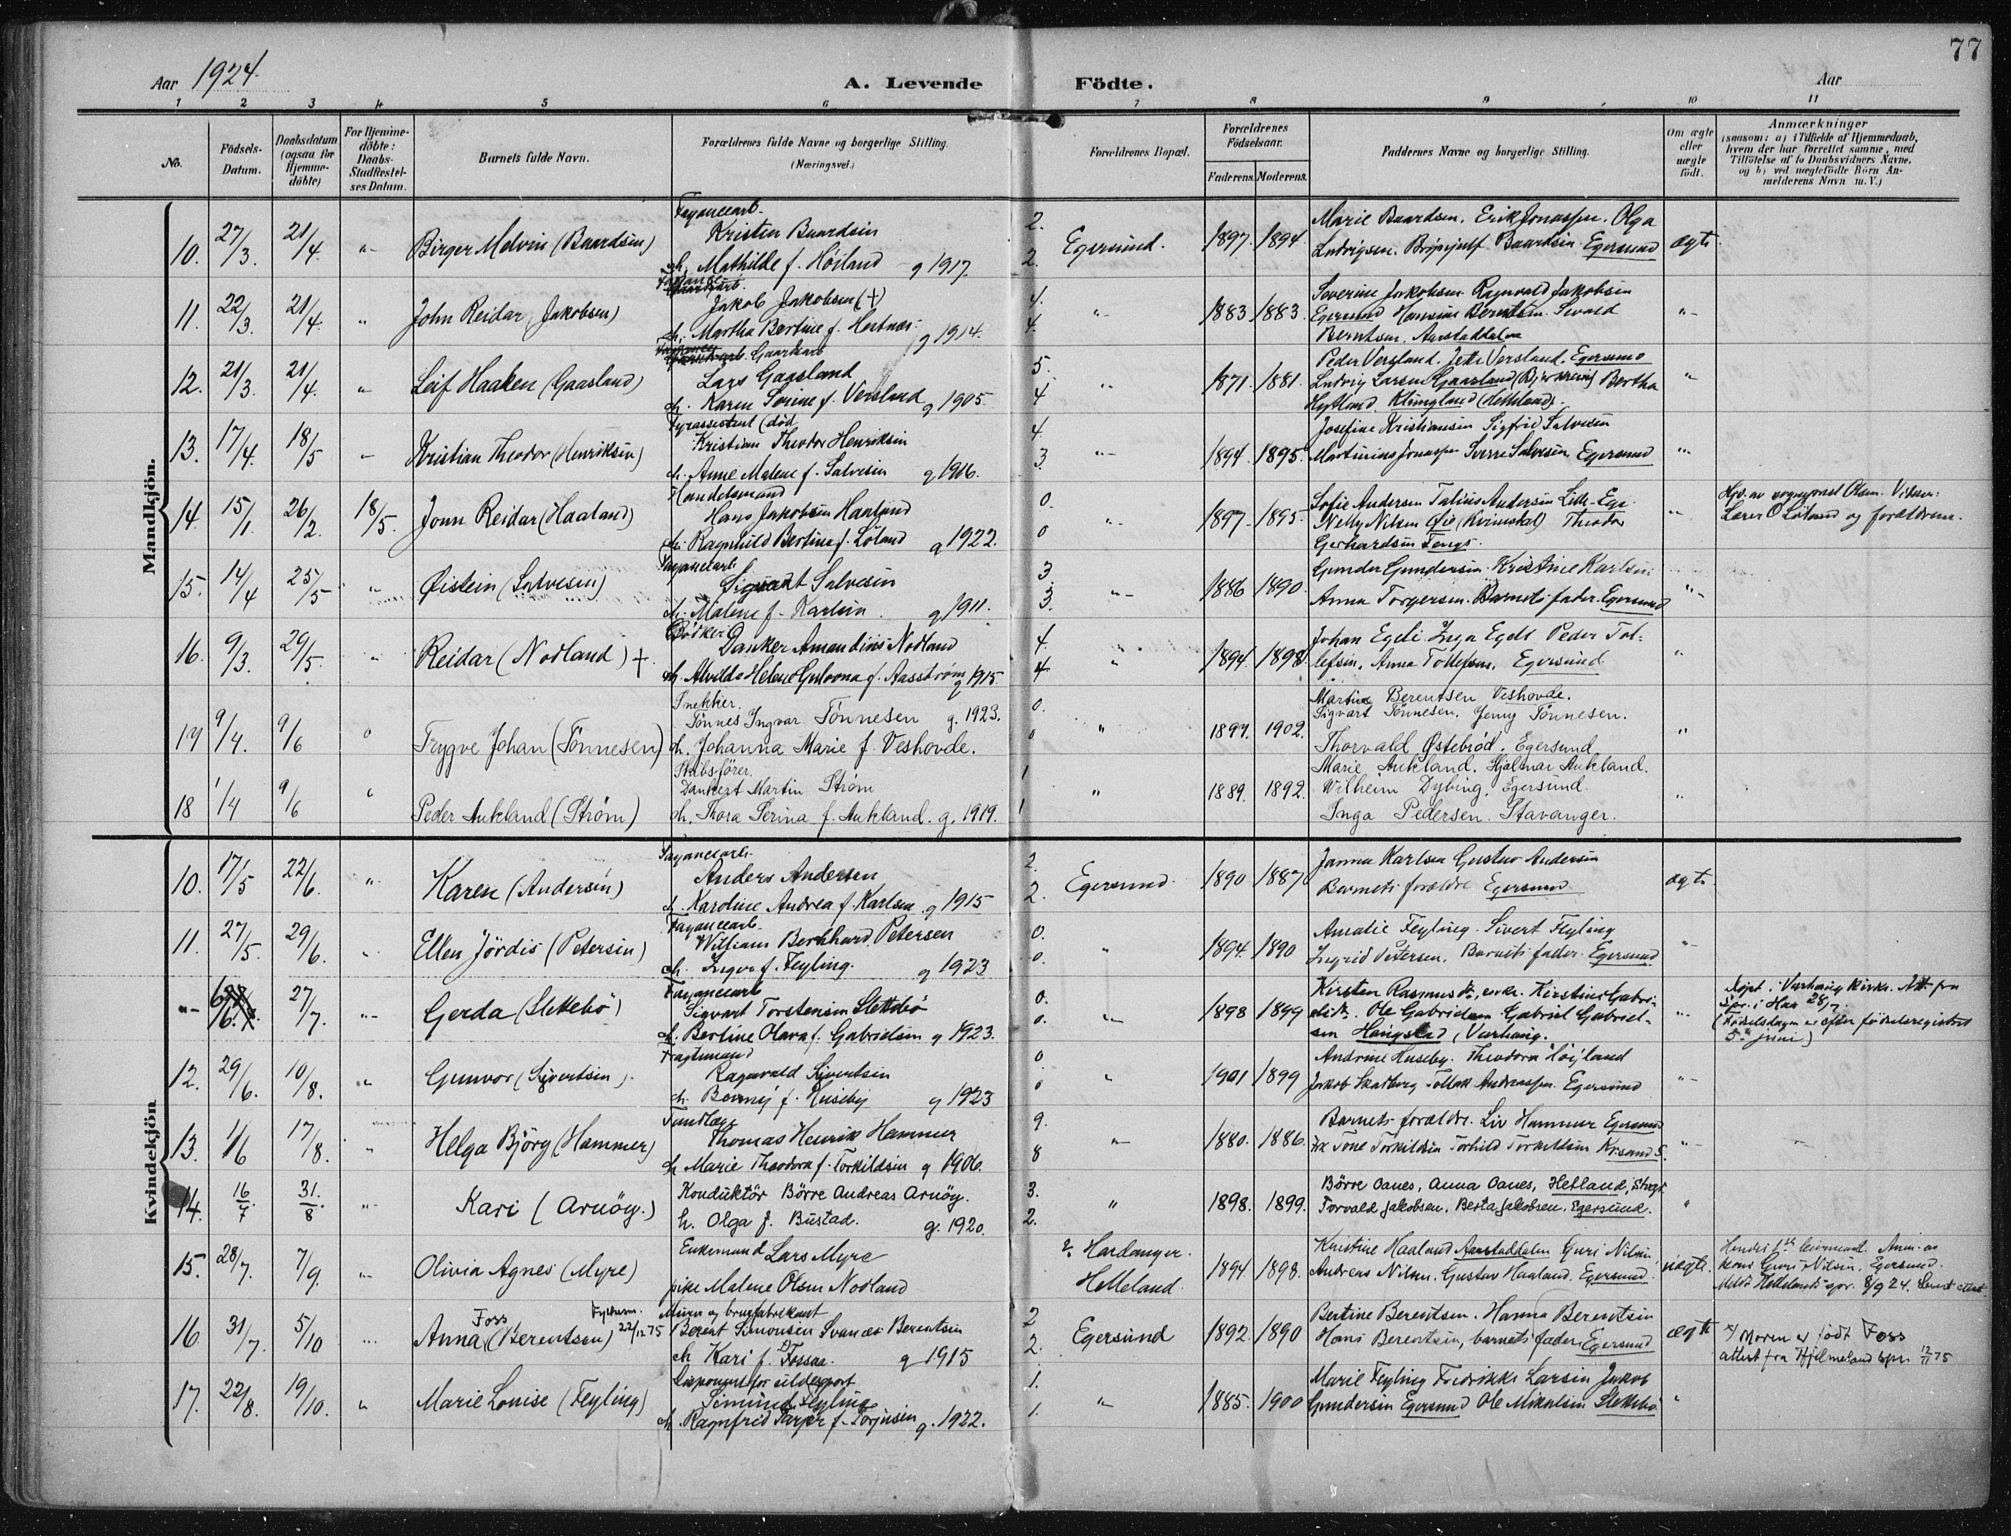 77
Aar 1924.
A. Levende Födte.
Aar
1 2 3 4 5 6 7 8 9 10 11
No.
Födsels-Datum.
Daabsdatum (ogsaa for Hjemmedöbte)
For Hjemmedöbte: Daabs-Stadfæstelses Datum.
Barnets fulde Navn.
Forældrenes fulde Navne og borgerlige Stilling. (Næringsvei.)
Forældrenes Bopæl.
Forældrenes Födselsaar.
Faderens. Moderens.
Faddernes Navne og borgerlige Stilling.
Om ægte eller uægte födt.
Anmærkninger
(saasom: a) i Tilfælde af Hjemmedaab, hvem der har forrettet samme, med Tilföielse af to Daabsvidners Navne, og b) ved uægtefödte Börn Anmelderens Navn m. V.)
Mandkjön.
Fayancearb.
10. 27/3. 21/4. „ Birger Melvin (Baardsen) Kristen Baardsen 2. Egersund. 1897. 1894. Marie Baardsen. Erik Jonassen. Olga
h. Mathilde f. Höiland g 1917. 2. Ludvigsen. Baardsen. Egersund ægte
11. 22/3. 21/4. „ John Reidar (Jakobsen) Jakob Jakobsen (+) 4. „ 1883 1883. Severine Jakobsen Ragnvald Jakobsen
h. Martha Bertine f. g 1914. 4. Egersund Hansine Berntsen. Sivald
Berntsen. Aarstaddalen
Gaardarb
12. 21/3. 21/4. „ Leif Haaken (Gaasland) Lars Gaasland 5. „ 1871. 1881. Peder Versland. Versland. Egersund
h. Karen Serine f. Versland g 1905. 4 Ludvig Larsen Gaasland (Bjerkreim) Bertha
Klungland (Helleland).
Fyrassistent (død
13. 17/4. 18/5 „ Kristian Theodor (Henriksen) Kristian Theodor Henriksen 4. „ 1894. 1895. Josefine Kristiansen Sigfrid Salvesen
h. Anne Malene f. Salvesen g 1916. 3. Martinius Jonassen Sverre Salvesen. Egersund „
Handelsmand
14. 15/1. 26/2. 18/5. John Reidar (Haaland) Hans Jakobsen Haaland 0. „ 1897. 1895. Sofie Andersen Andersen Lille-Ege
h. Ragnhild Bertine f. Löland g 1922. 0 Nelly Nilsen (Kvinesdal) Theodor
Gerhardsen Tengs.
Hjd. av sogneprest Olsen. Vitner:
Lærer O Löland og forældrene.
Fayancearb
15. 14/4 25/5 „ Øistein (Salvesen) Sigvart Salvesen 3. „ 1886 1890. Gunder Gundersen. Kristine Karlsen
h. Malene f. Karlsen. g 1911. 3. Anna Torgersen. Barnets fader. Egersund „
Bødker
16. 9/3. 29/5. „ Reidar (Nodland) + Danker Amandius Nodland 4. „ 1894 1898 Johan Egeli. Inga Egeli Peder Tol-
h. Alvilde Helene f. Aasström g 1915 4 lefsen. Anna Tollefsen. Egersund „
Snekker.
17 9/4. 9/6 „ Trygve Johan (Tönnesen) Tönnes Ingvar Tönnesen g. 1923. 0. „ 1897. 1902. Martine Berentsen Veshovde.
h. Johanna Marie f. Veshovde. 0 Sigvart Tönnesen, Jenny Tönnesen.
Thorvald Østebrød. Egersund „
18 1/4 9/6 „ Peder Aukland (Strøm) Dankert Martin Strøm 1 „ 1889. 1892. Marie Aukland. Hjalmar Aukland.
h. Thora Serina f. Aukland. g. 1919. 1 Vilhelm Dybing. Egersund.
Inga Pedersen. Stavanger. „
Kvindekjön
Fayancearb.
10. 17/5 22/6. „ Karen (Andersen) Anders Andersen 2. Egersund. 1890 1887 Janna Karlsen Gustav Andersen
h. Karoline Andrea f. Karlsen. g 1915 2. Barnets forældre Egersund ægte
Fayancearb.
11. 27/5. 29/6. „ Ellen Jördis (Petersen) William Bernhard Petersen 0. „ 1894. 1890 Amalie Feyling. Sivert Feyling
h. Inga f. Feyling. g 1923 0. Ingrid Petersen. Barnets fader. Egersund „
Fayancearb
„ 27/7. „ Gerda (Slettebö) Sigvart Torstensen Slettebö 0. „ 1898 1899 Kirsten enke. Kirstine Gabri-
h. Bertine Olava f. Gabrielsen g 1923. 0. Ole Gabrielsen Gabriel Gabriel-
sen (Varhaug. „
Döpt i Varhaug kirke. Att fra
Spr. i Haa 28/7.
(Födselsdagen er efter födselsregistret
5te juni)
Fragtemand
12. 29/6. 10/8. „ Gunvor (Sivertsen). Ragnvald Sivertsen 0 „ 1901 1899 Andrine Huseby. Theodora
h. f. Huseby g 1923 0 Jakob Skadberg Tollak Andreassen. Egersund „
13. 1/6 17/8. „ Helga Björg (Hammer) Thomas Henrik Hammer 9. „ 1880. 1886. Barnets forældre. Liv Hammer Egersund
h. Marie Theodora f. Torkildsen g 1906. 8 Tone Torkildsen Torhild Torkildsen Krsand S. „
14. 16/7 31./8 „ Kari (Arnöy.) Konduktör Börre Andreas Arnöy. 3. „ 1898. 1899. Börre Oanes, Anna Oanes, Hetland,
h. Olga f. Bustad. g. 1920. 2. Torvald Jakobsen. Berta Jakobsen. Egersund. „
15. 28/7. 7/9. „ Olivia Agnes (Myre) Enkemand Lars Myre Hardanger. 1894. 1898. Kristine Haaland Aarstaddalen Guri Nilsen
pike Malene Olsen Nodland Helleland. Andreas Nilsen. Gustav Haaland. Egersund uægte.
Hendes 1ste leiermaal. Anm. av
Guri Nilsen, Egersund.
8/9 24.
Foss
Murer og brugfabrikant
16. 31/7. 5/10 „ Anna (Berentsen) 22/12 75 Berent Simonsen Svanæs Berentsen 2 Egersund 1892. 1890 Bertine Berentsen. Hanna Berentsen
h. Kari f. Fossaa. g 1915 2. Hans Berentsen, barnets fader. Egersund ægte
Moren er født Foss
attest fra Hjelmeland spr. 12/11 75
Disponent for sildexport
17. 22/8. 19/10. „ Marie Louise (Feyling) Simund Feyling 1. „ 1885. 1900 Marie Feyling Fredrikke Larsen Jakob
h. Ragnfrid f. Torjusen g. 1922. 1. Gundersen Egersund Ole Mikalsen Slettebö „